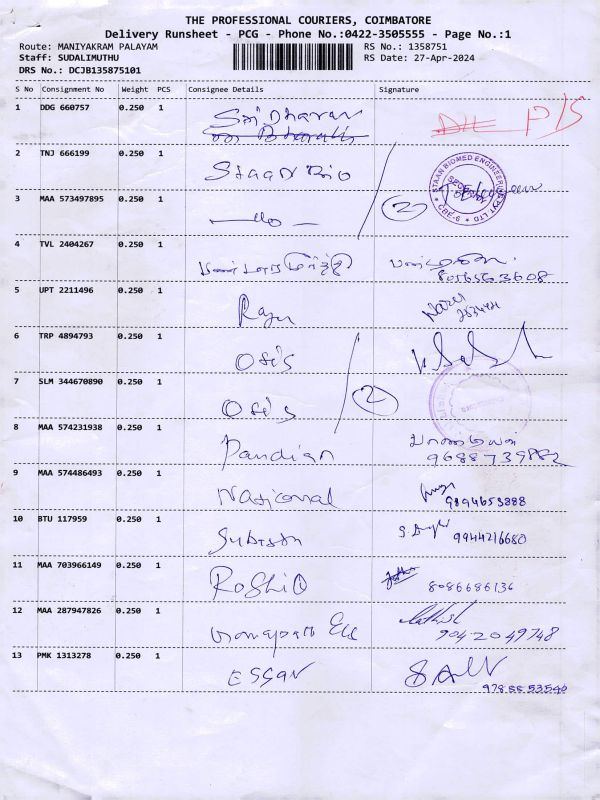 THE PROFESSIONAL COURIERS, COIMBATORE
Delivery Runsheet - PCG - Phone No.:0422-3505555 - Page No.:1
Route: MANIYAKRAM PALAYAM RS No.: 1358751
Staff: SUDALIMUTHU RS Date: 27-Apr-2024
DRS No.: DCJB135875101
S No Consignment No Weight PCS Consignee Details Signature
1 DDG 660757 0.250 1 Sri Dharan P/S
2 TNJ 666199 0.250 1 Staan Bio
STAAN BIOMED ENGINEERING PVT LTD CBE-9
3 MAA 573497895 0.250 1 2
4 TVL 2404267 0.250 1
8056563608
5 UPT 2211496 0.250 1 Raju
6 TRP 4894793 0.250 1
7 SLM 344670890 0.250 1 2
8 MAA 574231938 0.250 1 Pandian
9688739882
9 MAA 574486493 0.250 1 National 9894653888
10 BTU 117959 0.250 1 9944216680
11 MAA 703966149 0.250 1 8086686136
12 MAA 287947826 0.250 1
9042049748
13 PMK 1313278 0.250 1 ESSAR
9788553540